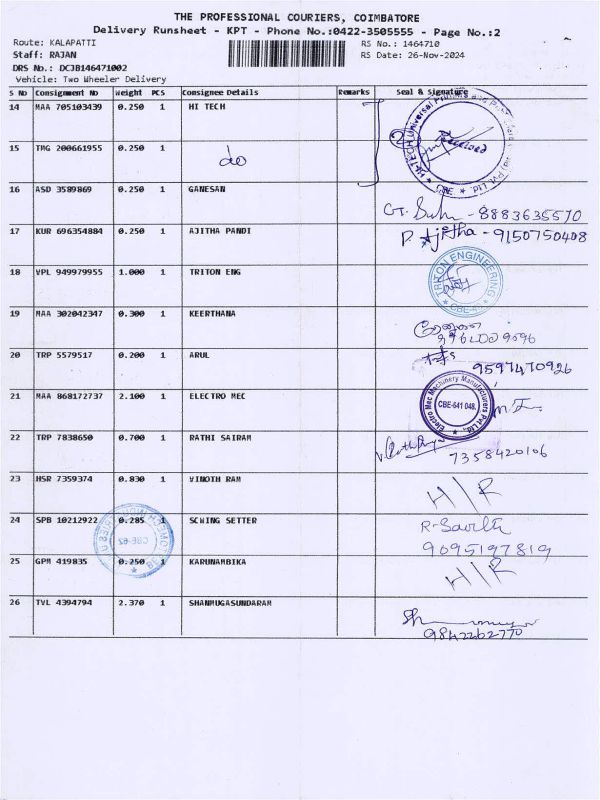 THE PROFESSIONAL COURIERS, COIMBATORE
Delivery Runsheet - KPT - Phone No.:0422-3505555 - Page No.:2
Route: KALAPATTI
RS No.: 1464710
Staff: RAJAN
RS Date: 26-Nov-2024
DRS No.: DCJB146471002
Vehicle: Two Wheeler Delivery
S No Consignment No Weight PCS Consignee Details Remarks Seal & Signature
14 MAA 705103439 0.250 1 HI TECH
15 TMG 200661955 0.250 1 do
16 ASD 3589869 0.250 1 GANESAN
8883635570
17 KUR 696354884 0.250 1 AJITHA PANDI P. Ajitha - 9150750408
18 VPL 949979955 1.000 1 TRITON ENG TRITON ENGINEERING
19 MAA 302042347 0.300 1 KEERTHANA
20 TRP 5579517 0.200 1 ARUL
9597470926
21 MAA 868172737 2.100 1 ELECTRO MEC Electro Mec Machinery Manufacturers Pvt Ltd. CBE-641 048.
22 TRP 7838650 0.700 1 RATHI SAIRAM
7358420106
23 HSR 7359374 0.830 1 VINOTH RAM H/R
24 SPB 10212922 0.285 1 SCHING SETTER
9095197819
25 GPM 419835 0.250 1 KARUNAMBIKA H/R
26 TVL 4394794 2.370 1 SHANMUGASUNDARAM
9842262770